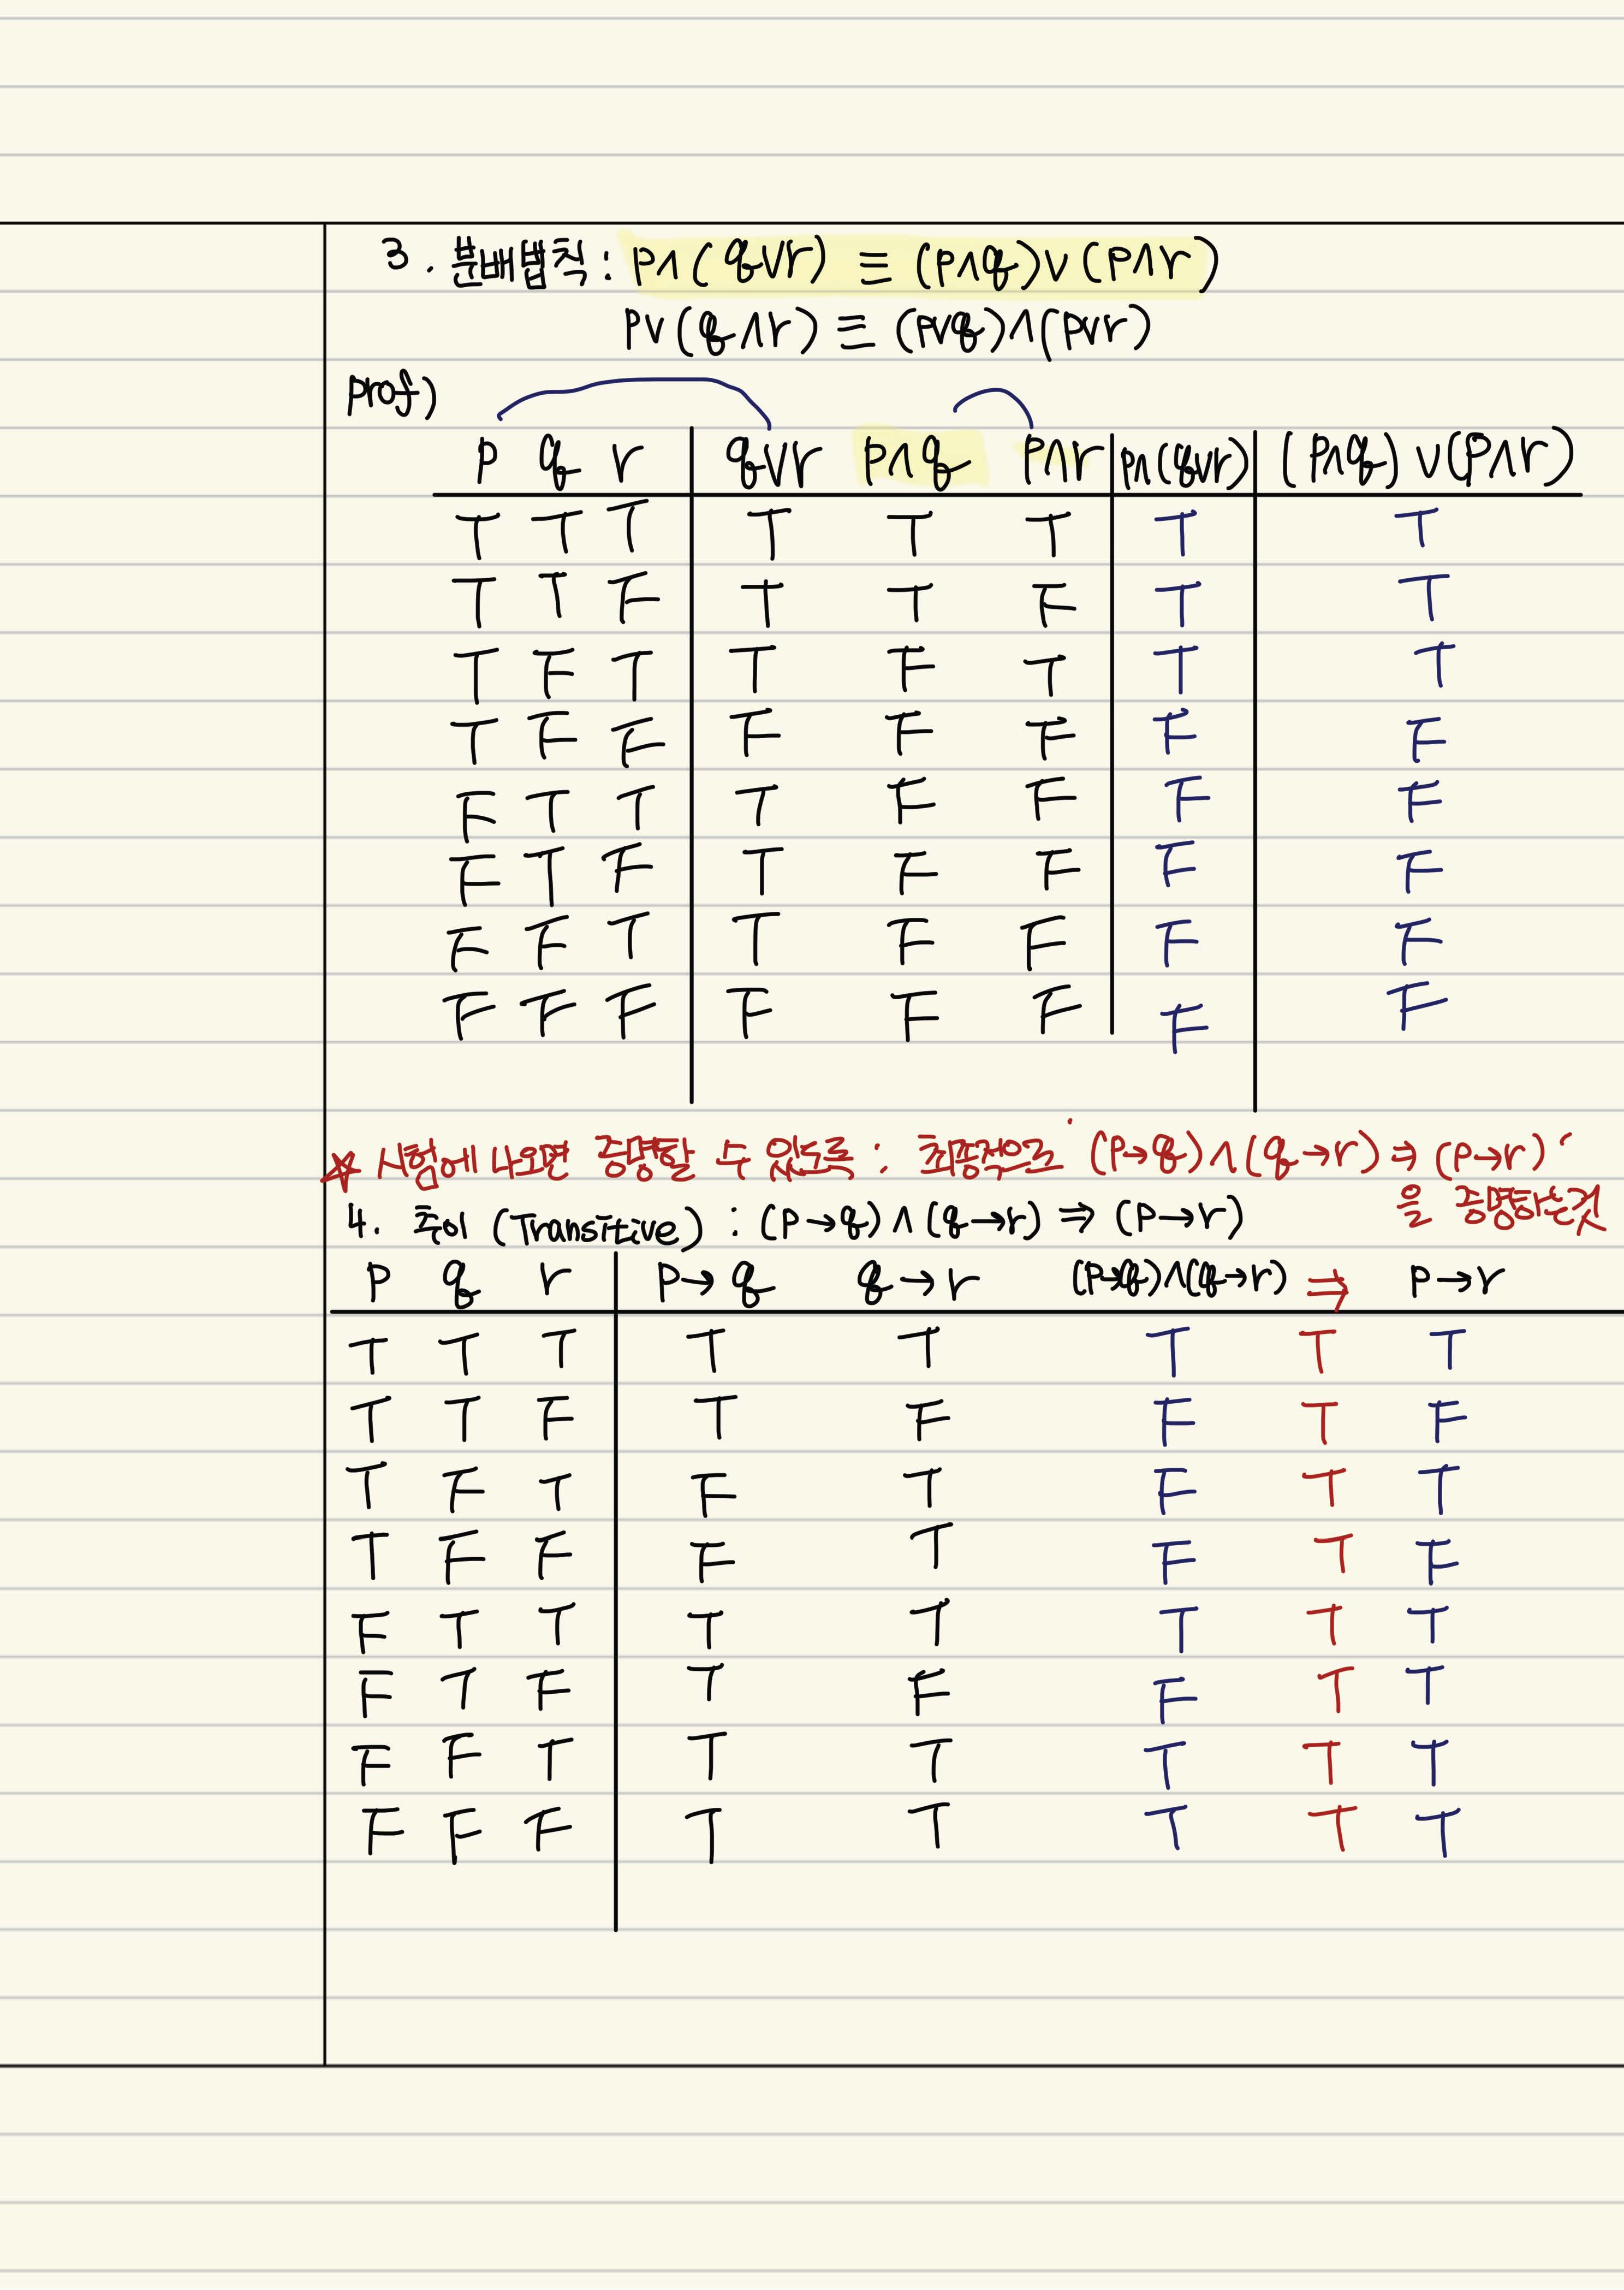 3. 분배법칙: p∧(q∨r) ≡ (p∧q)∨(p∧r)
p∨(q∧r) ≡ (p∨q)∧(p∨r)
prof)
p q r q∨r p∧q p∧r p∧(q∨r) (p∧q)∨(p∧r)
T T T T T T T T
T T F T T F T T
T F T T F T T T
T F F F F F F F
F T T T F F F F
F T F T F F F F
F F T T F F F F
F F F F F F F F
☆ 시험에 나오면 증명할 수 있도록: 최종적으로 '(p→q)∧(q→r)⇒(p→r)'
을 증명하는것
4. 추이 (Transitive) : (p→q)∧(q→r) ⇒ (p→r)
p q r p→q q→r (p→q)∧(q→r) ⇒ p→r
T T T T T T T T
T T F T F F T F
T F T F T F T T
T F F F T F T F
F T T T T T T T
F T F T F F T T
F F T T T T T T
F F F T T T T T